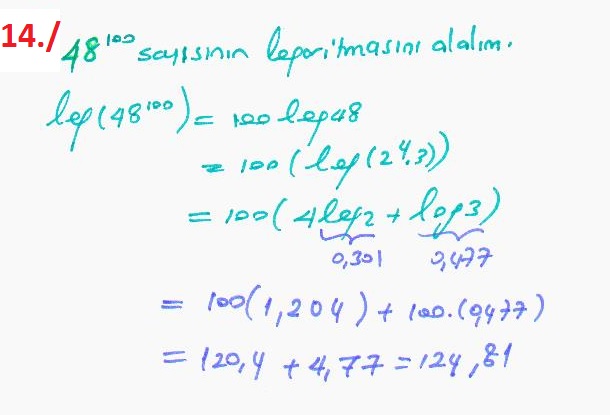 14./ 48¹⁰⁰ sayısının logaritmasını alalım.
log(48¹⁰⁰) = 100 log48
= 100 (log(2⁴.3))
= 100( 4log2 + log3)
0,301 0,477
= 100(1,204) + 100.(0,477)
= 120,4 + 4,77 = 124,81